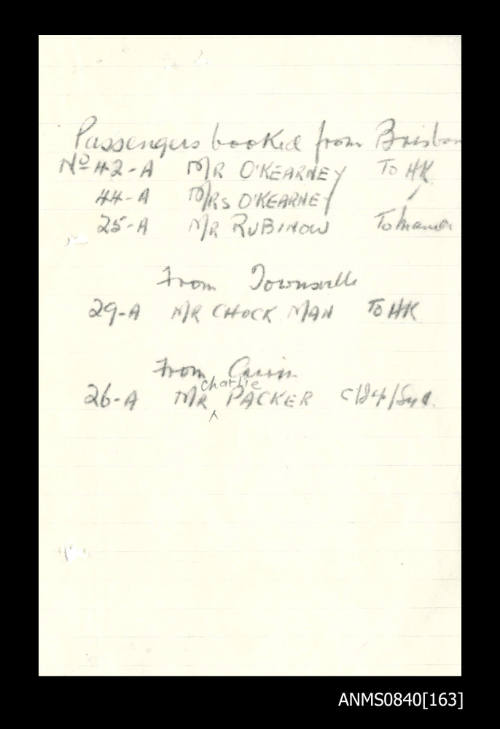 Passengers booked from Brisban
No 42-A MR O'KEARNEY To HK
44-A MRS O'KEARNEY
25-A MR RUBINOW To
From Townsville
29-A MR CHOCK MAN To HK
From
charlie
26-A MR PACKER
ANMS0840[163]